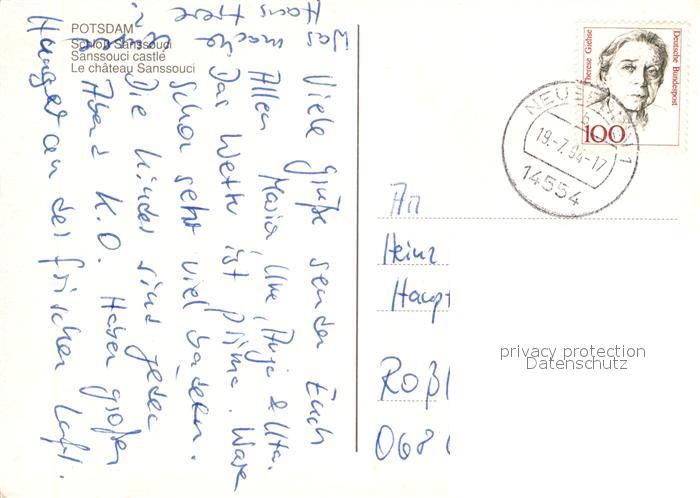 POTSDAM
Schloß Sanssouci
Sanssouci castle
Le château Sanssouci
Viele Grüße senden Euch
Allen Maria Uwe, Anja & Uta.
Das Wetter ist prima. Waren
schon sehr viel baden.
Die Kinder sind jeden
Abend K.O. Haben großen
Hunger an der frischen Luft.
Das macht
Therese Giehse
Deutsche Bundespost
100
19.-7.94-17
14554
An
Heinz
Haupt
Roßl
068
privacy protection
Datenschutz